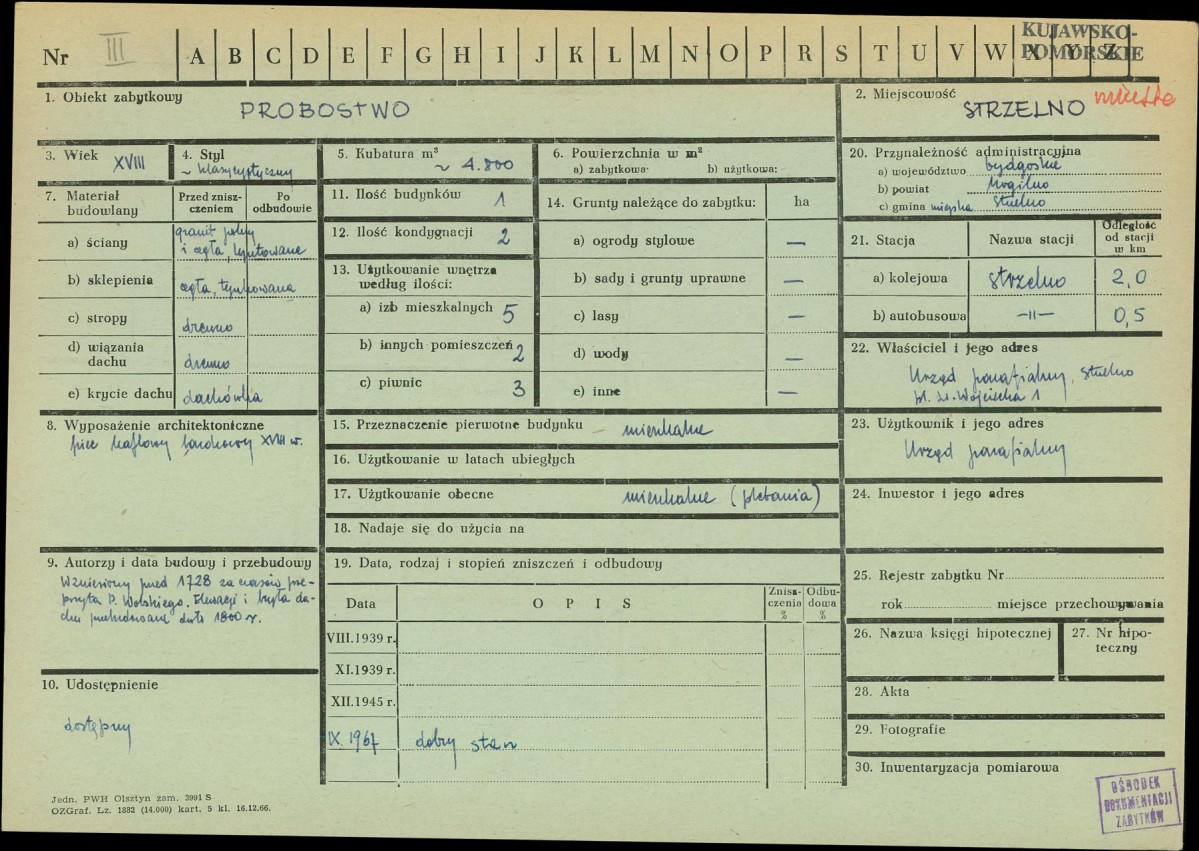 Nr III A B C D E F G H I J K L M N O P R S T U V W X Y Z
KUJAWSKO-
POMORSKIE
1. Obiekt zabytkowy
PROBOSTWO
2. Miejscowość
STRZELNO miasto
3. Wiek XVIII
4. Styl
~ klasycystyczny
5. Kubatura m³
~ 4.800
6. Powierzchnia w m²
a) zabytkowa: b) użytkowa:
20. Przynależność administracyjna
a) województwo bydgoskie
b) powiat Mogilno
c) gmina miejska Strzelno
7. Materiał
budowlany
Przed znisz-
czeniem
Po
odbudowie
a) ściany granit polny
i cegła, tynkowane
b) sklepienia cegła, tynkowana
c) stropy drewno
d) wiązania
dachu drewno
e) krycie dachu dachówka
11. Ilość budynków 1
12. Ilość kondygnacji 2
13. Użytkowanie wnętrza
według ilości:
a) izb mieszkalnych 5
b) innych pomieszczeń 2
c) piwnic 3
14. Grunty należące do zabytku: ha
a) ogrody stylowe —
b) sady i grunty uprawne —
c) lasy —
d) wody —
e) inne —
21. Stacja Nazwa stacji
Odległość
od stacji
w km
a) kolejowa Strzelno 2,0
b) autobusowa —II— 0,5
22. Właściciel i jego adres
Urząd parafialny, Strzelno
pl. św. Wojciecha 1
8. Wyposażenie architektoniczne
piec kaflowy barokowy XVIII w.
15. Przeznaczenie pierwotne budynku mieszkalne
16. Użytkowanie w latach ubiegłych
17. Użytkowanie obecne mieszkalne (plebania)
18. Nadaje się do użycia na
23. Użytkownik i jego adres
Urząd parafialny
24. Inwestor i jego adres
9. Autorzy i data budowy i przebudowy
Wzniesiony przed 1728 za czasów pre-
pozyta P. Wolskiego. Elewacji i bryła da-
chu przebudowane około 1800 r.
10. Udostępnienie
dostępny
19. Data, rodzaj i stopień zniszczeń i odbudowy
Data O P I S
Znisz-
czenia
%
Odbu-
dowa
%
VIII.1939 r.
XI.1939 r.
XII.1945 r.
IX.1967 dobry stan
25. Rejestr zabytku Nr
rok miejsce przechowywania
26. Nazwa księgi hipotecznej
27. Nr hipo-
teczny
28. Akta
29. Fotografie
30. Inwentaryzacja pomiarowa
OŚRODEK
DOKUMENTACJI
ZABYTKÓW
Jedn. PWH Olsztyn zam. 3991 S
OZGraf. Lz. 1882 (14.000) kart. 5 kl. 16.12.66.